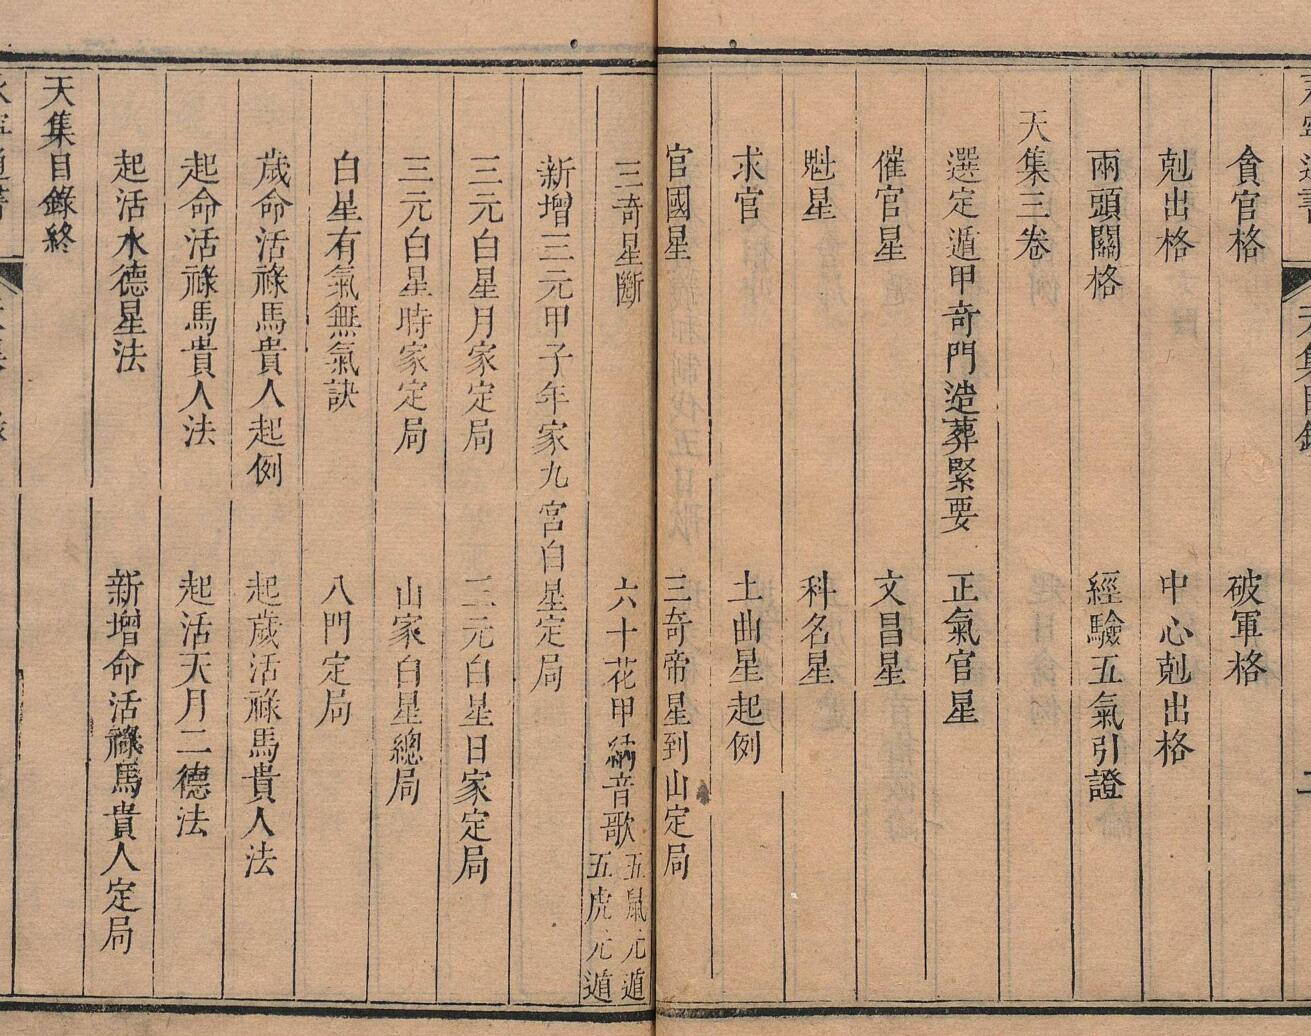 貪官格　破軍格
尅出格　中心尅出格
兩頭關格　經驗五氣引證
天集三卷
選定遁甲奇門造葬緊要　正氣官星
催官星　文昌星
魁星　科名星
求官　土曲星起例
官國星　三奇帝星到山定局
三奇星斷　六十花甲納音歌　五鼠元遁　五虎元遁
新增三元甲子年家九宮白星定局
三元白星月家定局　三元白星日家定局
三元白星時家定局　山家白星總局
白星有氣無氣訣　八門定局
歲命活祿馬貴人起例　起歲活祿馬貴人法
起命活祿馬貴人法　起活天月二德法
起活水德星法　新增命活祿馬貴人定局
天集目錄終